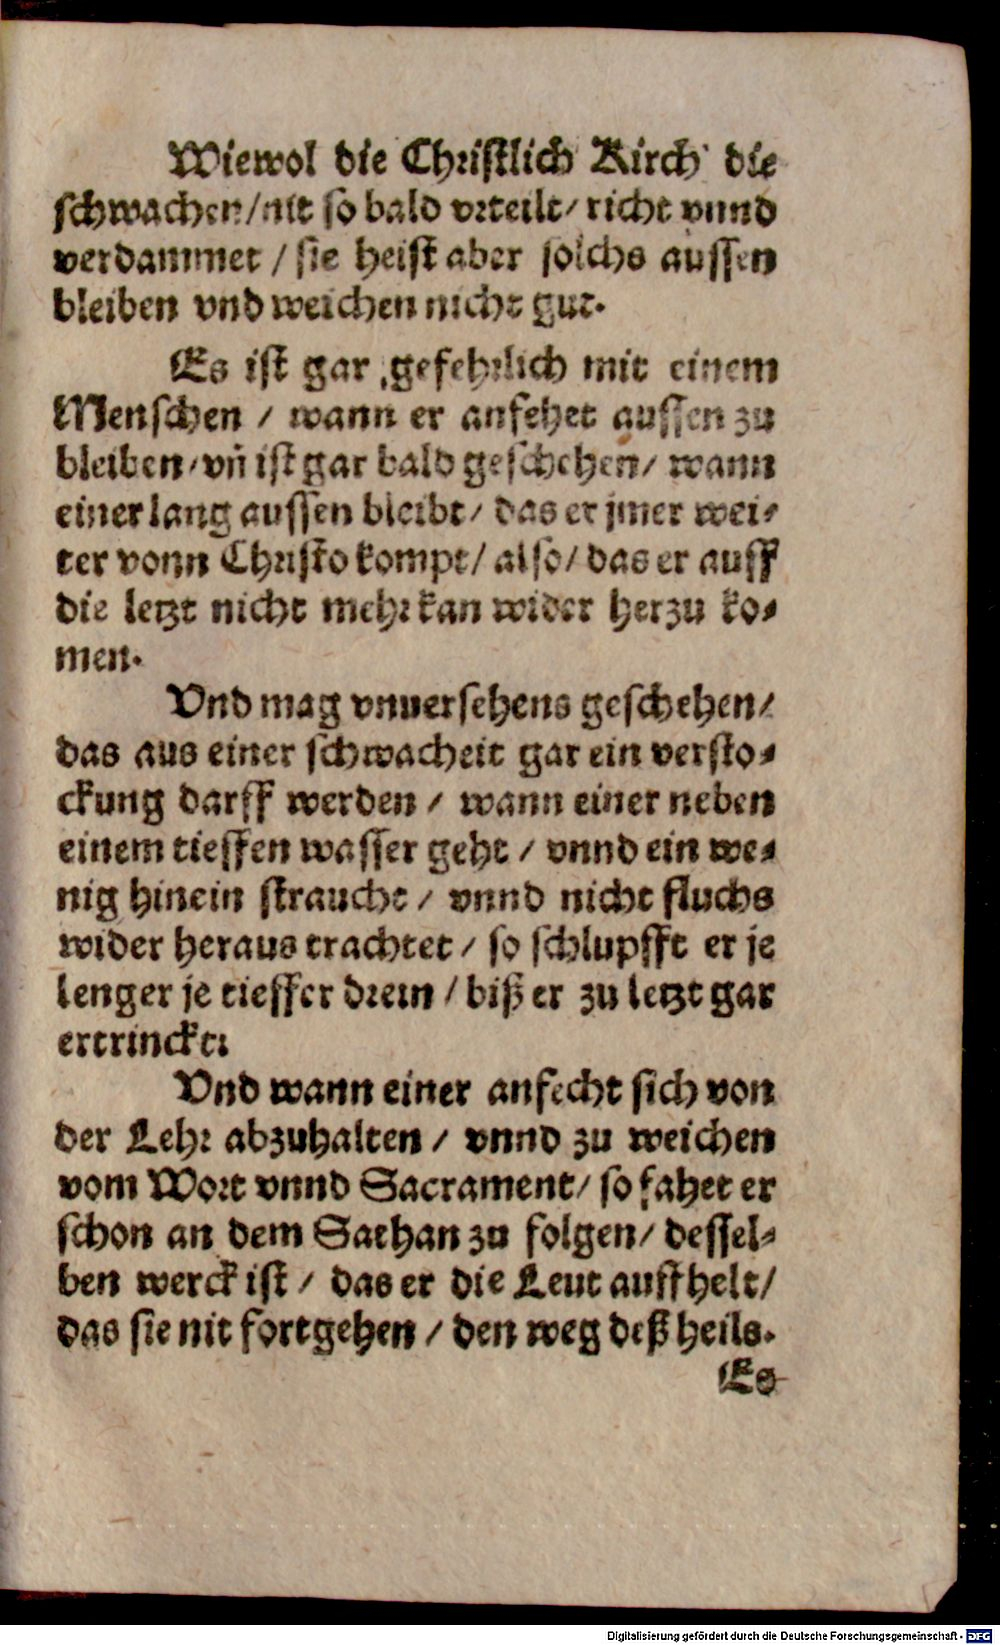 Wiewol die Christlich Kirch die
schwachen/nit so bald vrteilt/ richt vnnd
verdammet / sie heist aber solchs aussen
bleiben vnd weichen nicht gut.
Es ist gar gefehrlich mit einem
Menschen / wann er anfehet aussen zu
bleiben/vn̄ ist gar bald geschehen/ wann
einer lang aussen bleibt/ das er jmer wei-
ter vonn Christo kompt/ also/ das er auff
die letzt nicht mehr kan wider herzu ko-
men.
Vnd mag vnuersehens geschehen/
das aus einer schwacheit gar ein versto-
ckung darff werden / wann einer neben
einem tieffen wasser geht / vnnd ein we-
nig hinein straucht / vnnd nicht fluchs
wider heraus trachtet / so schlupfft er je
lenger je tieffer drein / biß er zu letzt gar
ertrinckt:
Vnd wann einer anfecht sich von
der Lehr abzuhalten / vnnd zu weichen
vom Wort vnnd Sacrament/ so fahet er
schon an dem Sathan zu folgen/ dessel-
ben werck ist / das er die Leut auffhelt/
das sie nit fortgehen / den weg deß heils.
Es
Digitalisierung gefördert durch die Deutsche Forschungsgemeinschaft - DFG